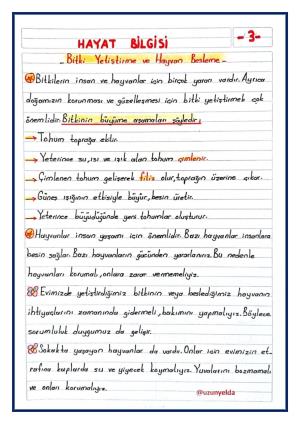 HAYAT BİLGİSİ
-3-
- Bitki Yetiştirme ve Hayvan Besleme -
Bitkilerin insan ve hayvanlar için birçok yararı vardır. Ayrıca
doğamızın korunması ve güzelleşmesi için bitki yetiştirmek çok
önemlidir. Bitkinin büyüme aşamaları şöyledir;
→ Tohum toprağa ekilir.
→ Yeterince su, ısı ve ışık alan tohum çimlenir.
→ Çimlenen tohum gelişerek filiz olur, toprağın üzerine çıkar.
→ Güneş ışığının etkisiyle büyür, besin üretir.
→ Yeterince büyüdüğünde yeni tohumlar oluşturur.
Hayvanlar insan yaşamı için önemlidir. Bazı hayvanlar insanlara
besin sağlar. Bazı hayvanların gücünden yararlanırız. Bu nedenle
hayvanları korumalı, onlara zarar vermemeliyiz.
Evimizde yetiştirdiğimiz bitkinin veya beslediğimiz hayvanın
ihtiyaçlarını zamanında gidermeli, bakımını yapmalıyız. Böylece
sorumluluk duygumuz da gelişir.
Sokakta yaşayan hayvanlar da vardır. Onlar için evimizin et-
rafına kaplarda su ve yiyecek koymalıyız. Yuvalarını bozmamalı
ve onları korumalıyız.
@uzunyelda